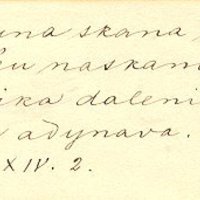 una skana
ku naskam
ika daleni
adynava.
XIV. 2.